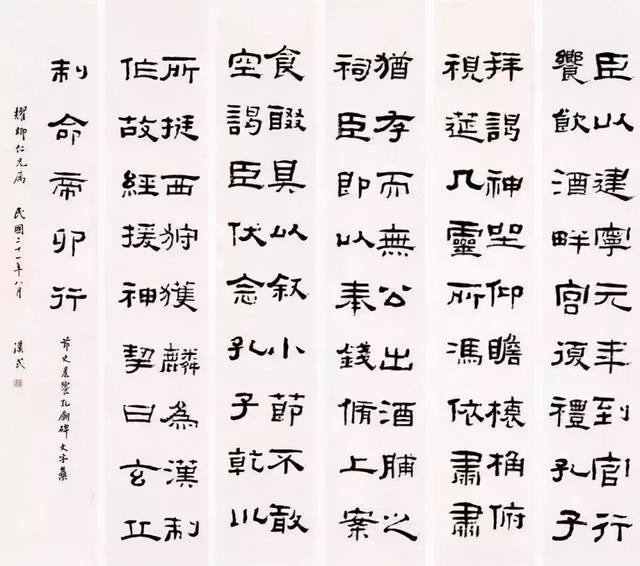 臣以建寧元年到官行
饗飲酒畔宮復禮孔子
拜謁神坐仰瞻榱桷俯
視筵几靈所馮依肅肅
猶存而無公出酒脯之
祠臣即以奉錢脩上案
食醊具以叙小節不敢
空謁臣伏念孔子乾巛
所挺西狩獲麟為漢制
作故經援神挈曰玄丘
制命帝卯行
節史晨饗孔廟碑文字集
耀卿仁兄屬 民國二十一年八月 漢民